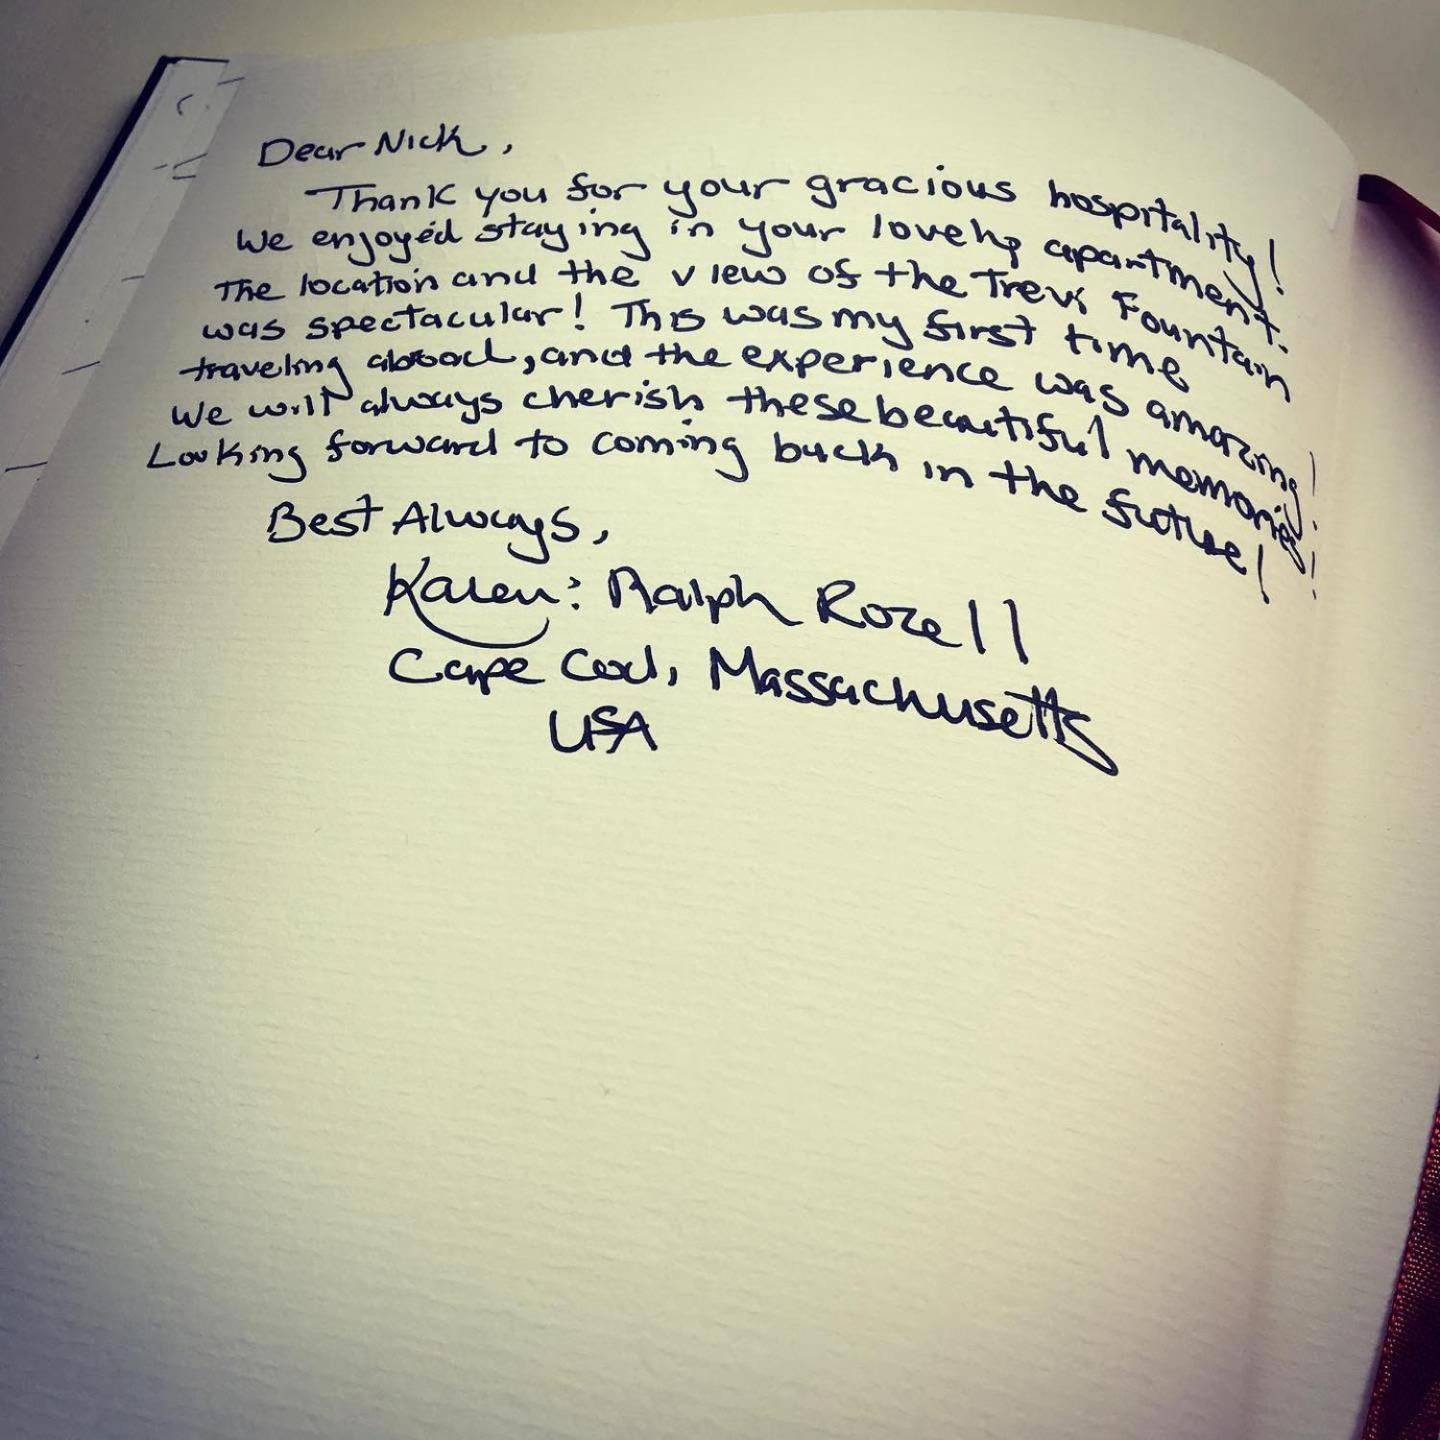 Dear Nick,
Thank you for your gracious hospitality!
We enjoyed staying in your lovely apartment.
The location and the view of the Trevi Fountain
was spectacular! This was my first time
traveling abroad, and the experience was amazing!
We will always cherish these beautiful memories!
Looking forward to coming back in the future!
Best Always,
Karen: Ralph Rozell
Cape Cod, Massachusetts
USA